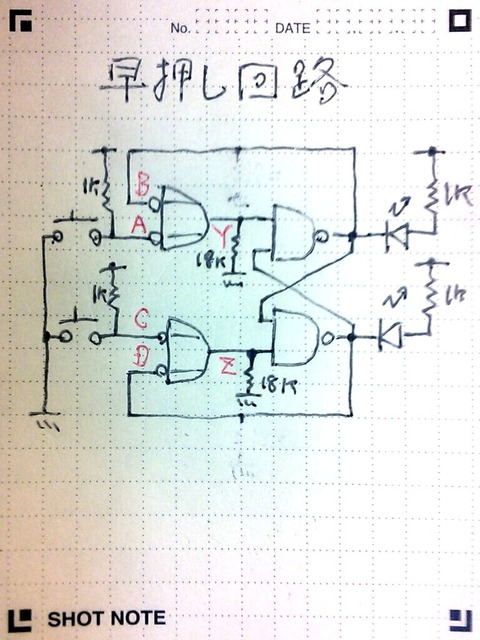 No. DATE
早押し回路
1K
1K
B
A
Y
18K
1K
1K
C
D
Z
18K
SHOT NOTE